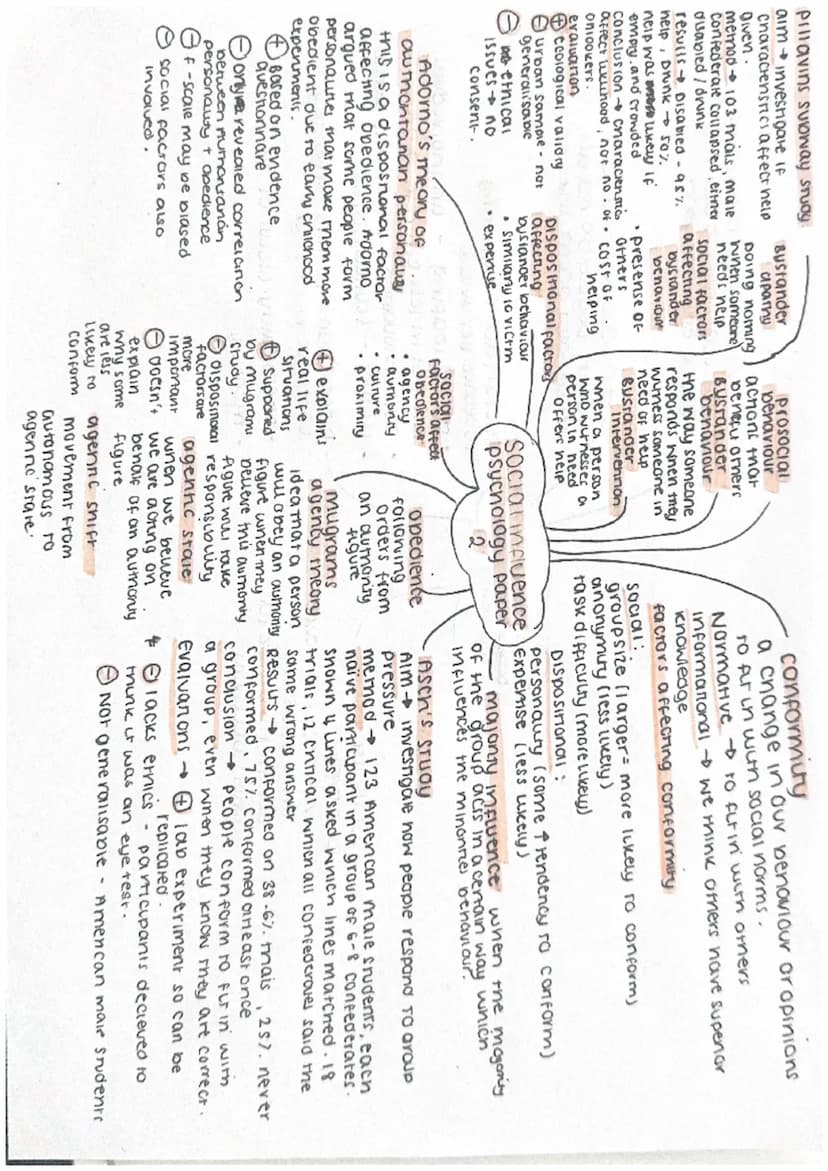 Social influence
psychology paper
2
Piliavins subway study
aim → investigate if
characteristics affect help
given.
method → 103 trials, male
confederate collapsed, either
disabled / drunk
results → Disabled - 95%
help, Drunk → 50%
help was likely if
empty. and crowded
conclusion → characteristics
affect likelihood, not no. of
onlookers.
evaluation
⊕ ecological validity
⊖ urban sample - not
generalisable
⊖ ethical
issues → no
consent.
Bystander
apathy
Doing nothing
when someone
needs help
social factors
affecting
bystander
behaviour
• presense of
others
• cost of
helping
Dispositional factors
affecting
bystander behaviour
• similarity to victim
• expertise
Prosocial
behaviour
actions that
benefit others
Bystander
behaviour
the way someone
responds when they
witness someone in
need of help
Bystander
intervention
when a person
who witnesses a
person in need
offers help
conformity
a change in our behaviour or opinions
to fit in with social norms.
Normative → to fit in with others
informational → we think others have superior
knowledge
factors affecting conformity
social:
group size (larger = more likely to conform)
anonymity (less likely)
task difficulty (more likely)
Dispositional:
personality (some ↑ tendency to conform)
Expertise (less likely)
majority influence when the majority
of the group acts in a certain way which
influences the minorities behaviour.
Asch's study
Aim → investigate how people respond to group
pressure
method → 123 American male students, each
naive participant in a group of 6-8 confederates.
shown 4 lines asked which lines matched. 18
trials, 12 critical which all confederates said the
same wrong answer
Results → conformed on 36.6% trials, 25% never
conformed, 75% conformed at least once
conclusion → people conform to fit in with
a group, even when they know they are correct.
Evaluations → ⊕ lab experiment so can be
replicated.
⊖ lacks ethics - participants decieved to
think it was an eye test.
⊖ Not generalisable - American male students
obedience
following
orders from
an authority
figure
milgrams
agency theory
idea that a person
will obey an authority
figure when they
believe this authority
figure will take
responsibility
agentic state
when we believe
we are acting on
behalf of an authority
figure
agentic shift
movement from
autonomous to
agentic state.
social
factors affect
obedience
• agency
• authority
• culture
• proximity
⊕ explains
real life
situations
⊕ supported
by milgrams
study.
⊖ Dispositional
factors are
more
important
⊖ Doesn't
explain
why some
are less
likely to
conform
Adorno's theory of
authoritarian personality
this is a dispositional factor
affecting obedience. Adorno
argued that some people form
personalities that make them more
obedient due to early childhood
experiments.
⊕ Based on evidence
questionnaire
⊖ only revealed correlation
between authoritarian
personality + obedience
⊖ f-scale may be biased
⊖ social factors also
involved.